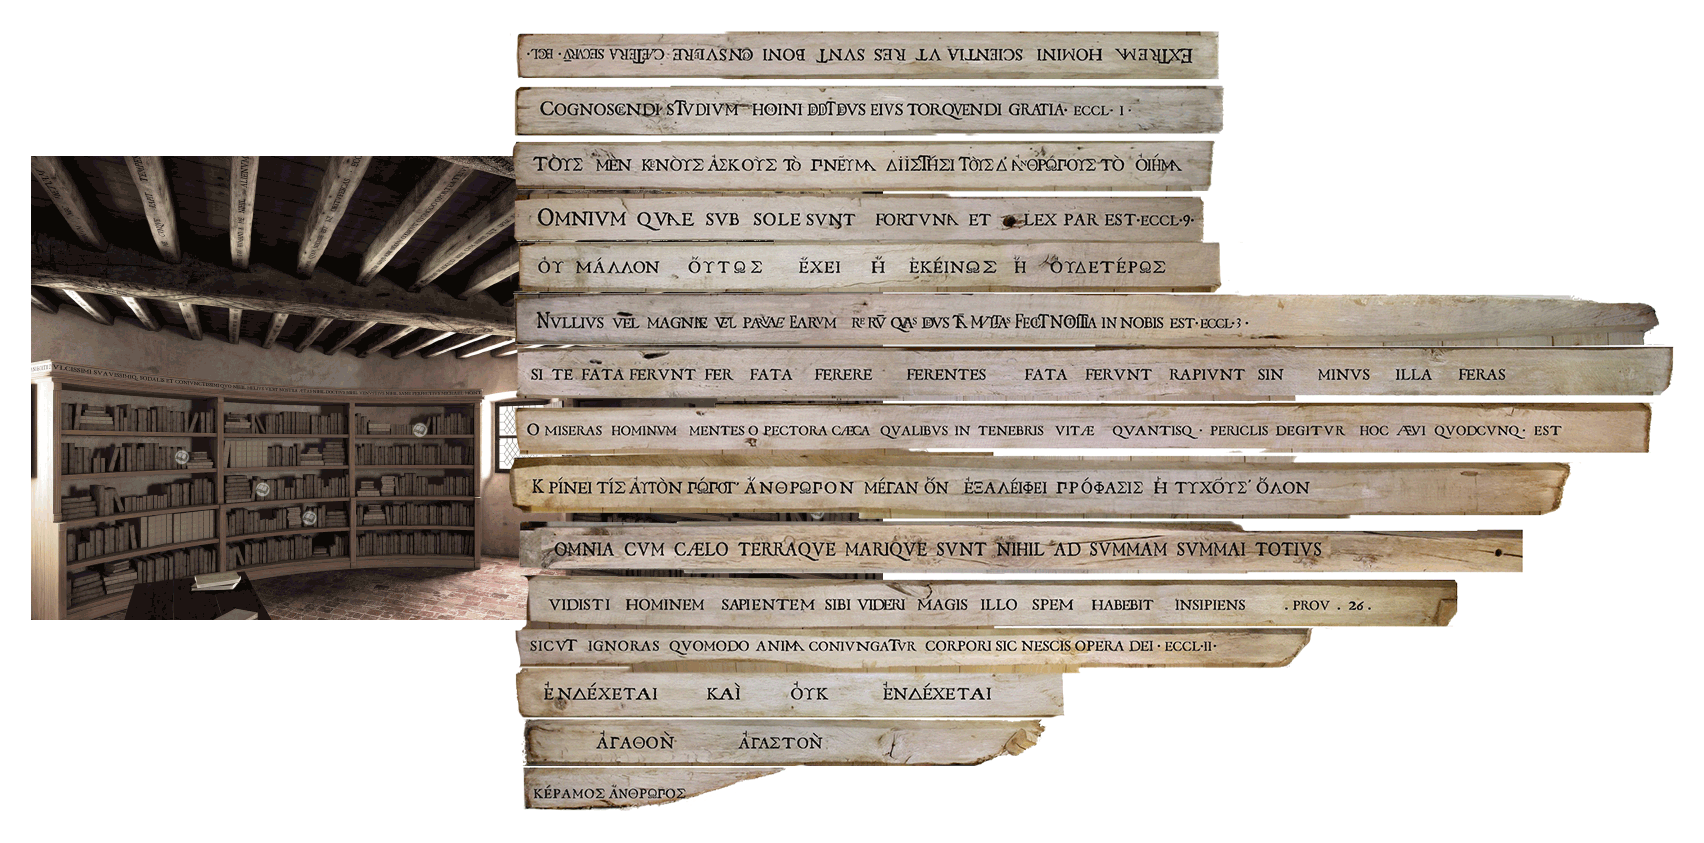 EXTREMA HOMINI SCIENTIA VT RES SVNT BONI CONSVLERE CÆTERA SECVRV̄ · ECCL ·
COGNOSCENDI STVDIVM HOMINI DEDIT DEVS EIVS TORQVENDI GRATIA · ECCL · I ·
ΤΟῪΣ ΜῈΝ ΚΕΝΟῪΣ ἈΣΚΟῪΣ ΤῸ ΠΝΕΥ͂ΜΑ ΔΙΪ́ΣΤΗΣΙ ΤΟῪΣ Δ' ἈΝΘΡΏΠΟΥΣ ΤῸ ΟἸΗΜΑ
OMNIVM QVAE SVB SOLE SVNT FORTVNA ET LEX PAR EST · ECCL · 9 ·
ὀΥ ΜᾶΛΛΟΝ ὍΥΤΩΣ ἜΧΕΙ Ἢ ἘΚΕΊΝΩΣ Ἢ ὀΥΔΕΤΈΡΩΣ
NVLLIVS VEL MAGNAE VEL PARVAE EARVM RERV̄ QVAS DEVS TAM MVLTAS FECIT NOTITIA IN NOBIS EST · ECCL · 3 ·
SI TE FATA FERVNT FER FATA FERERE FERENTES FATA FERVNT RAPIVNT SIN MINVS ILLA FERAS
O MISERAS HOMINVM MENTES O PECTORA CÆCA QVALIBVS IN TENEBRIS VITÆ QVANTISQ · PERICLIS DEGITVR HOC ÆVI QVODCVNQ · EST
ΚΡΊΝΕΙ ΤΊΣ ἈΥΤῸΝ ΠΏΠΟΤ' ἌΝΘΡΩΠΟΝ ΜΈΓΑΝ ὋΝ ἘΞΑΛΈΙΦΕΙ ΠΡΌΦΑΣΙΣ Ἡ ΤΥΧΟΥ͂Σ' ὍΛΟΝ
OMNIA CVM CÆLO TERRAQVE MARIQVE SVNT NIHIL AD SVMMAM SVMMAI TOTIVS
VIDISTI HOMINEM SAPIENTEM SIBI VIDERI MAGIS ILLO SPEM HABEBIT INSIPIENS . PROV . 26 .
SICVT IGNORAS QVOMODO ANIMA CONIVNGATVR CORPORI SIC NESCIS OPERA DEI · ECCL · II ·
ἘΝΔΈΧΕΤΑΙ ΚΑῚ ὀΥΚ ἘΝΔΈΧΕΤΑΙ
ἈΓΑΘῸΝ ἈΓΑΣΤῸΝ
ΚΈΡΑΜΟΣ ἌΝΘΡΩΠΟΣ